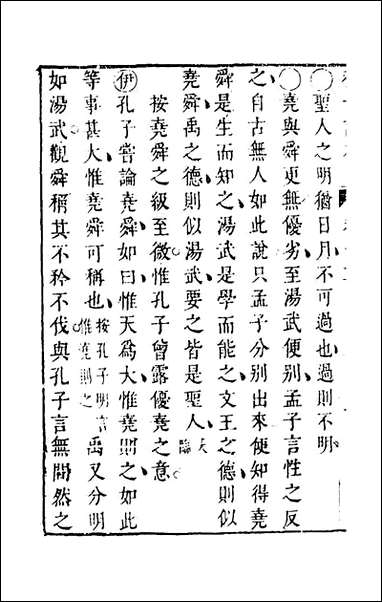 ○聖人之明猶日月不可過也過則不明
○堯與舜更無優劣至湯武便別孟子言性之反
之自古無人如此說只孟子分別出來便知得堯
舜是生而知之湯武是學而能之文王之德則似
堯舜禹之德則似湯武要之皆是聖人
按堯舜之級至微惟孔子曾露優堯之意
伊孔子嘗論堯舜如曰惟天爲大惟堯則之如此
等事甚大惟堯舜可稱也按孔子明言惟堯則之禹又分明
如湯武觀舜稱其不矜不伐與孔子言無間然之